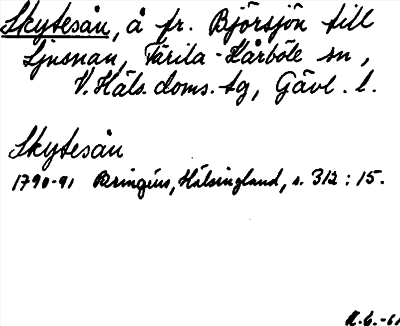 Skytesån, å fr. Björsjön till
Ljusnan, Färila-Kårböle sn,
V. Häls. doms. tg, Gävl. l.
Skytesån
1790-91 Bringéus, Hälsingland, s. 312 : 15.